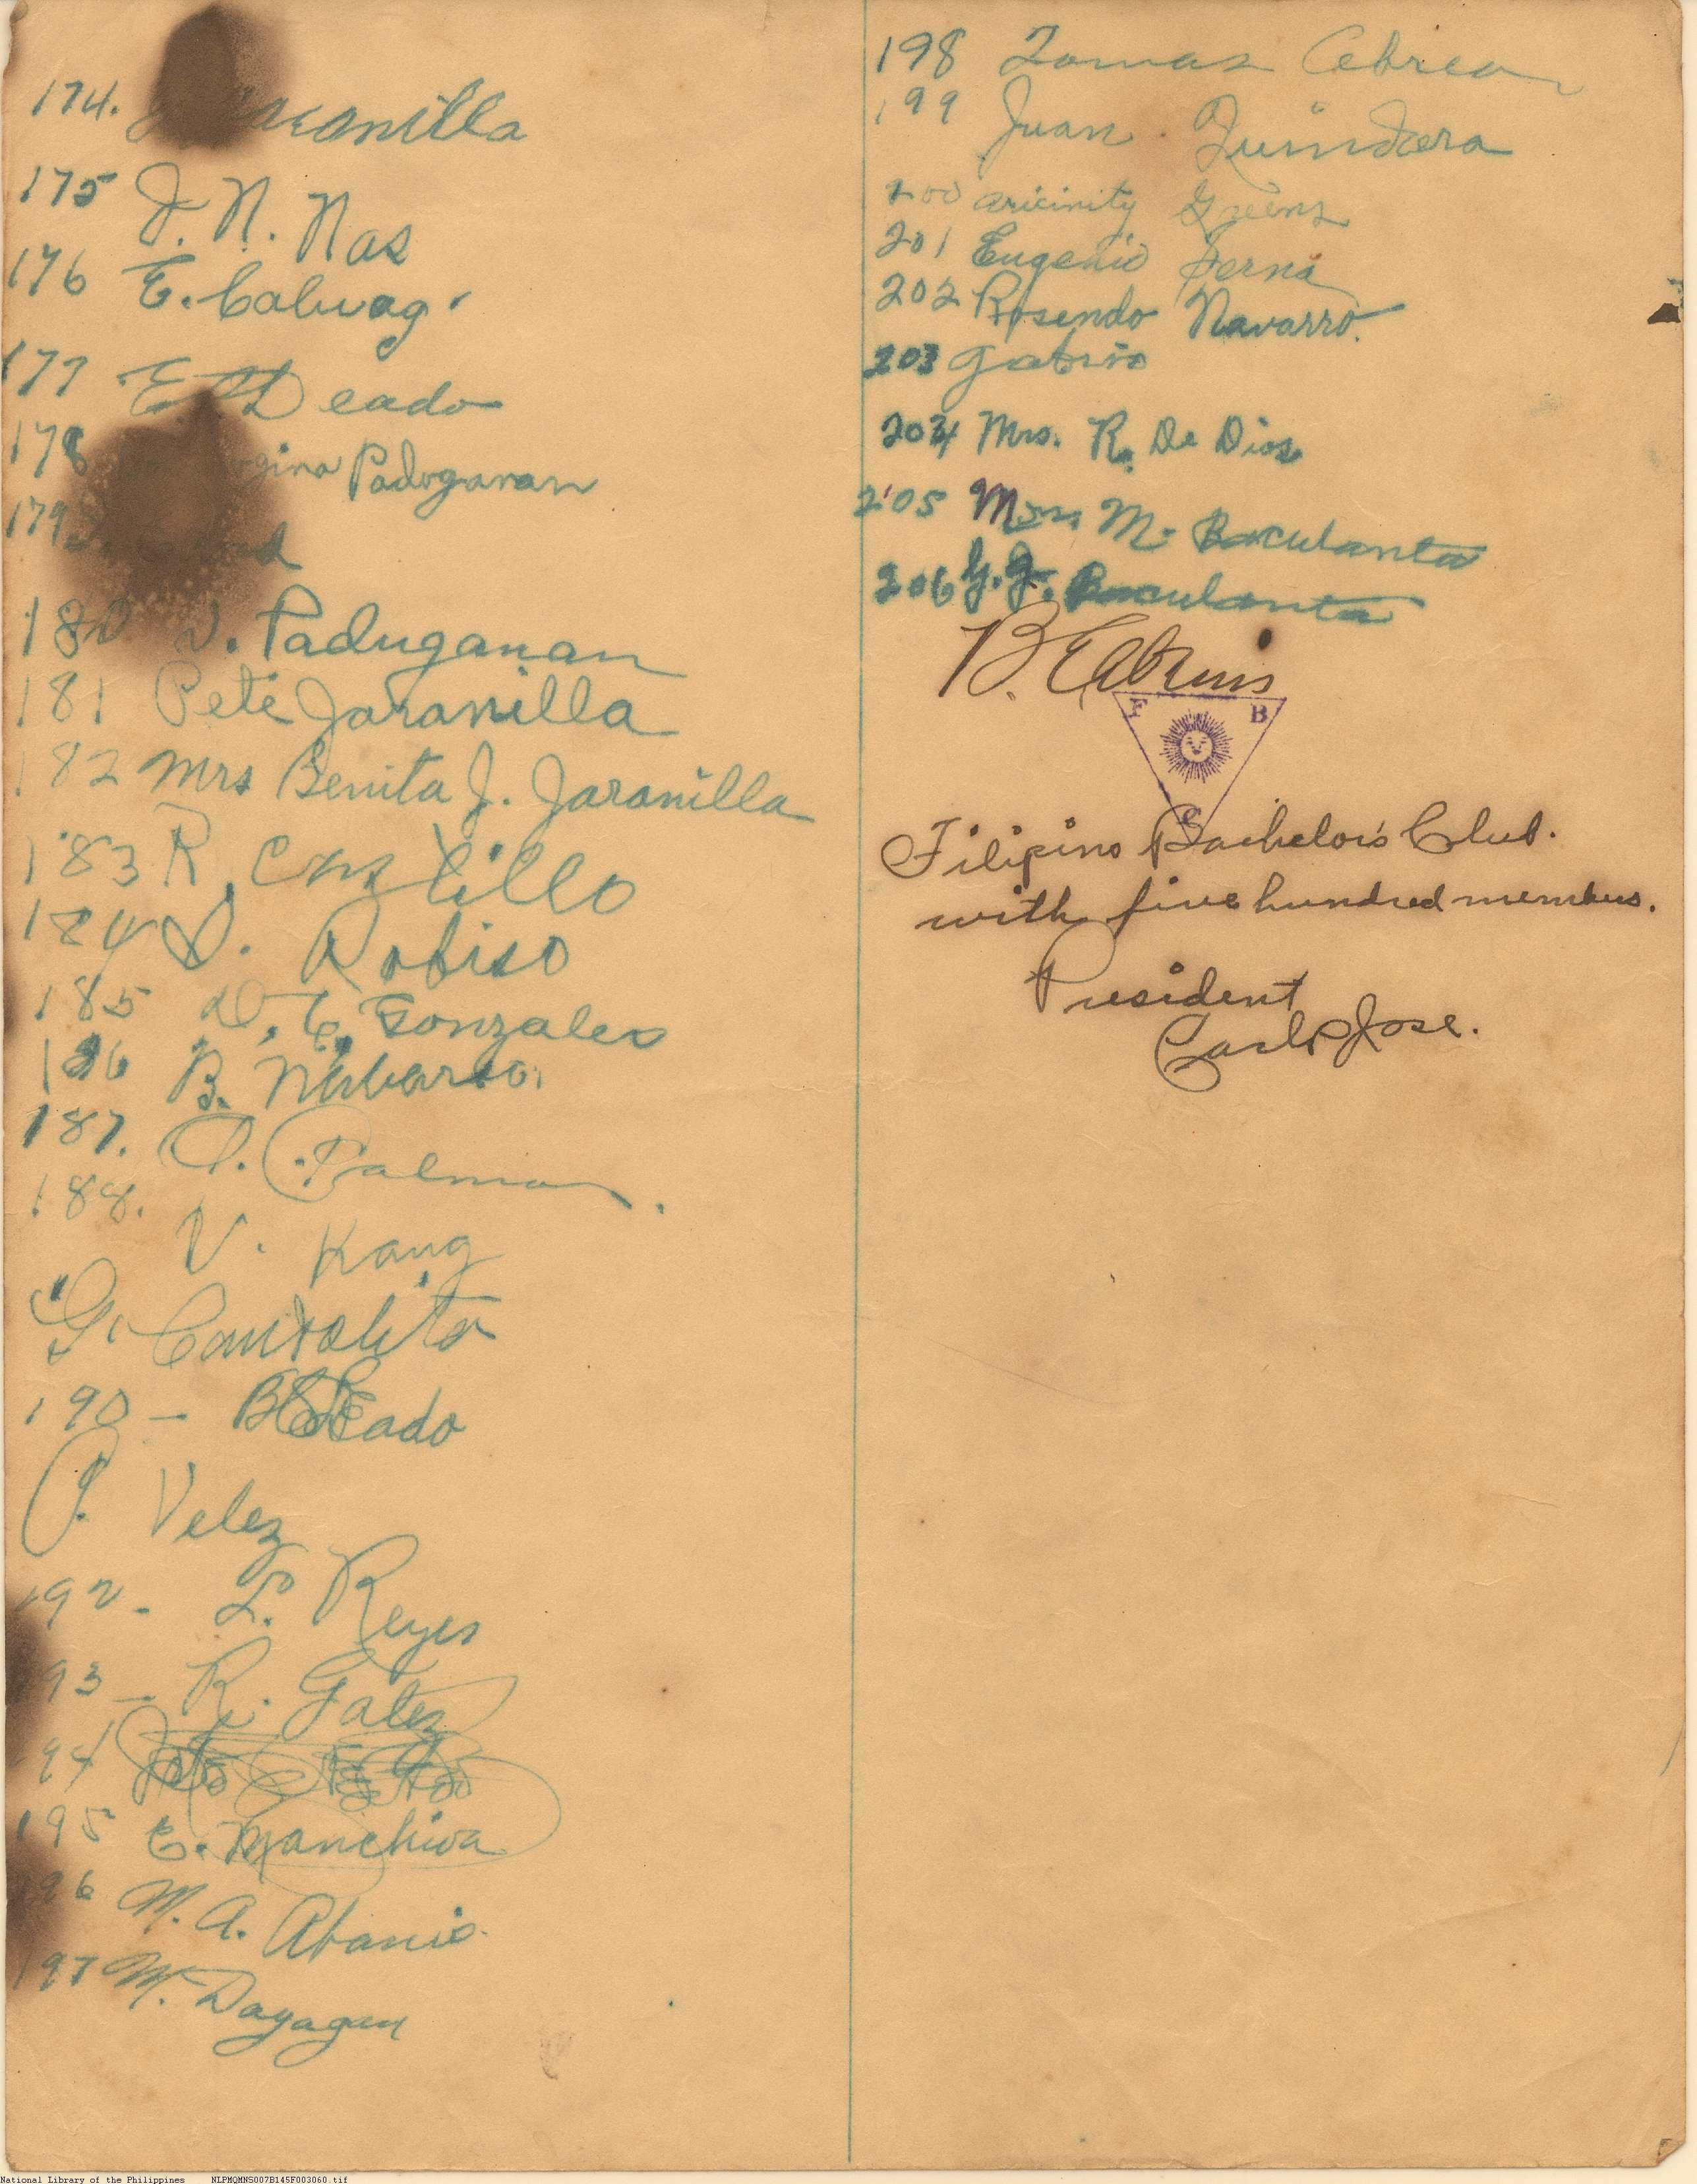 174.
175 J. N. Nas
176 E. Caluag
177 E Deado
178 Paduganan
179
180 V. Paduganan
181 Pete Jaranilla
182 Mrs Benita J. Jaranilla
183 R. Castillo
184 S. Robiso
185 D. C. Gonzales
186 B. Nabarro.
187. O. C. Palma.
188. V. Kang
G.
190 -
P. Velez
192- L. Reyes
93 - R. Gatez
94
195 E. Manchiva
96 M. A. Abanis.
197 M. Dayagan
198 Tomas Cabrera
199 Juan Quindara
200 Greens
201 Eugenio Serna
202 Rosendo Navarro.
203 Gabino
204 Mrs. R. De Dios
205 M. Baculanta
206 G. G. Baculanta
B.
F B
C
Filipino Bachelor's Club.
with five hundred members.
President
Carlo Jose.
National Library of the Philippines NLPMQMNS007B145F003060.tif